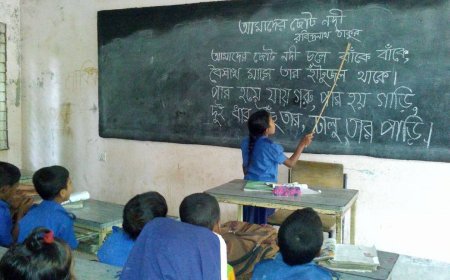 আমাদের ছোট নদী
রবীন্দ্রনাথ ঠাকুর
আমাদের ছোট নদী চলে বাঁকে বাঁকে,
বৈশাখ মাসে তার হাঁটুজল থাকে।
পার হয়ে যায় গরু, পার হয় গাড়ি,
দুই ধার উঁচু তার, ঢালু তার পাড়ি।